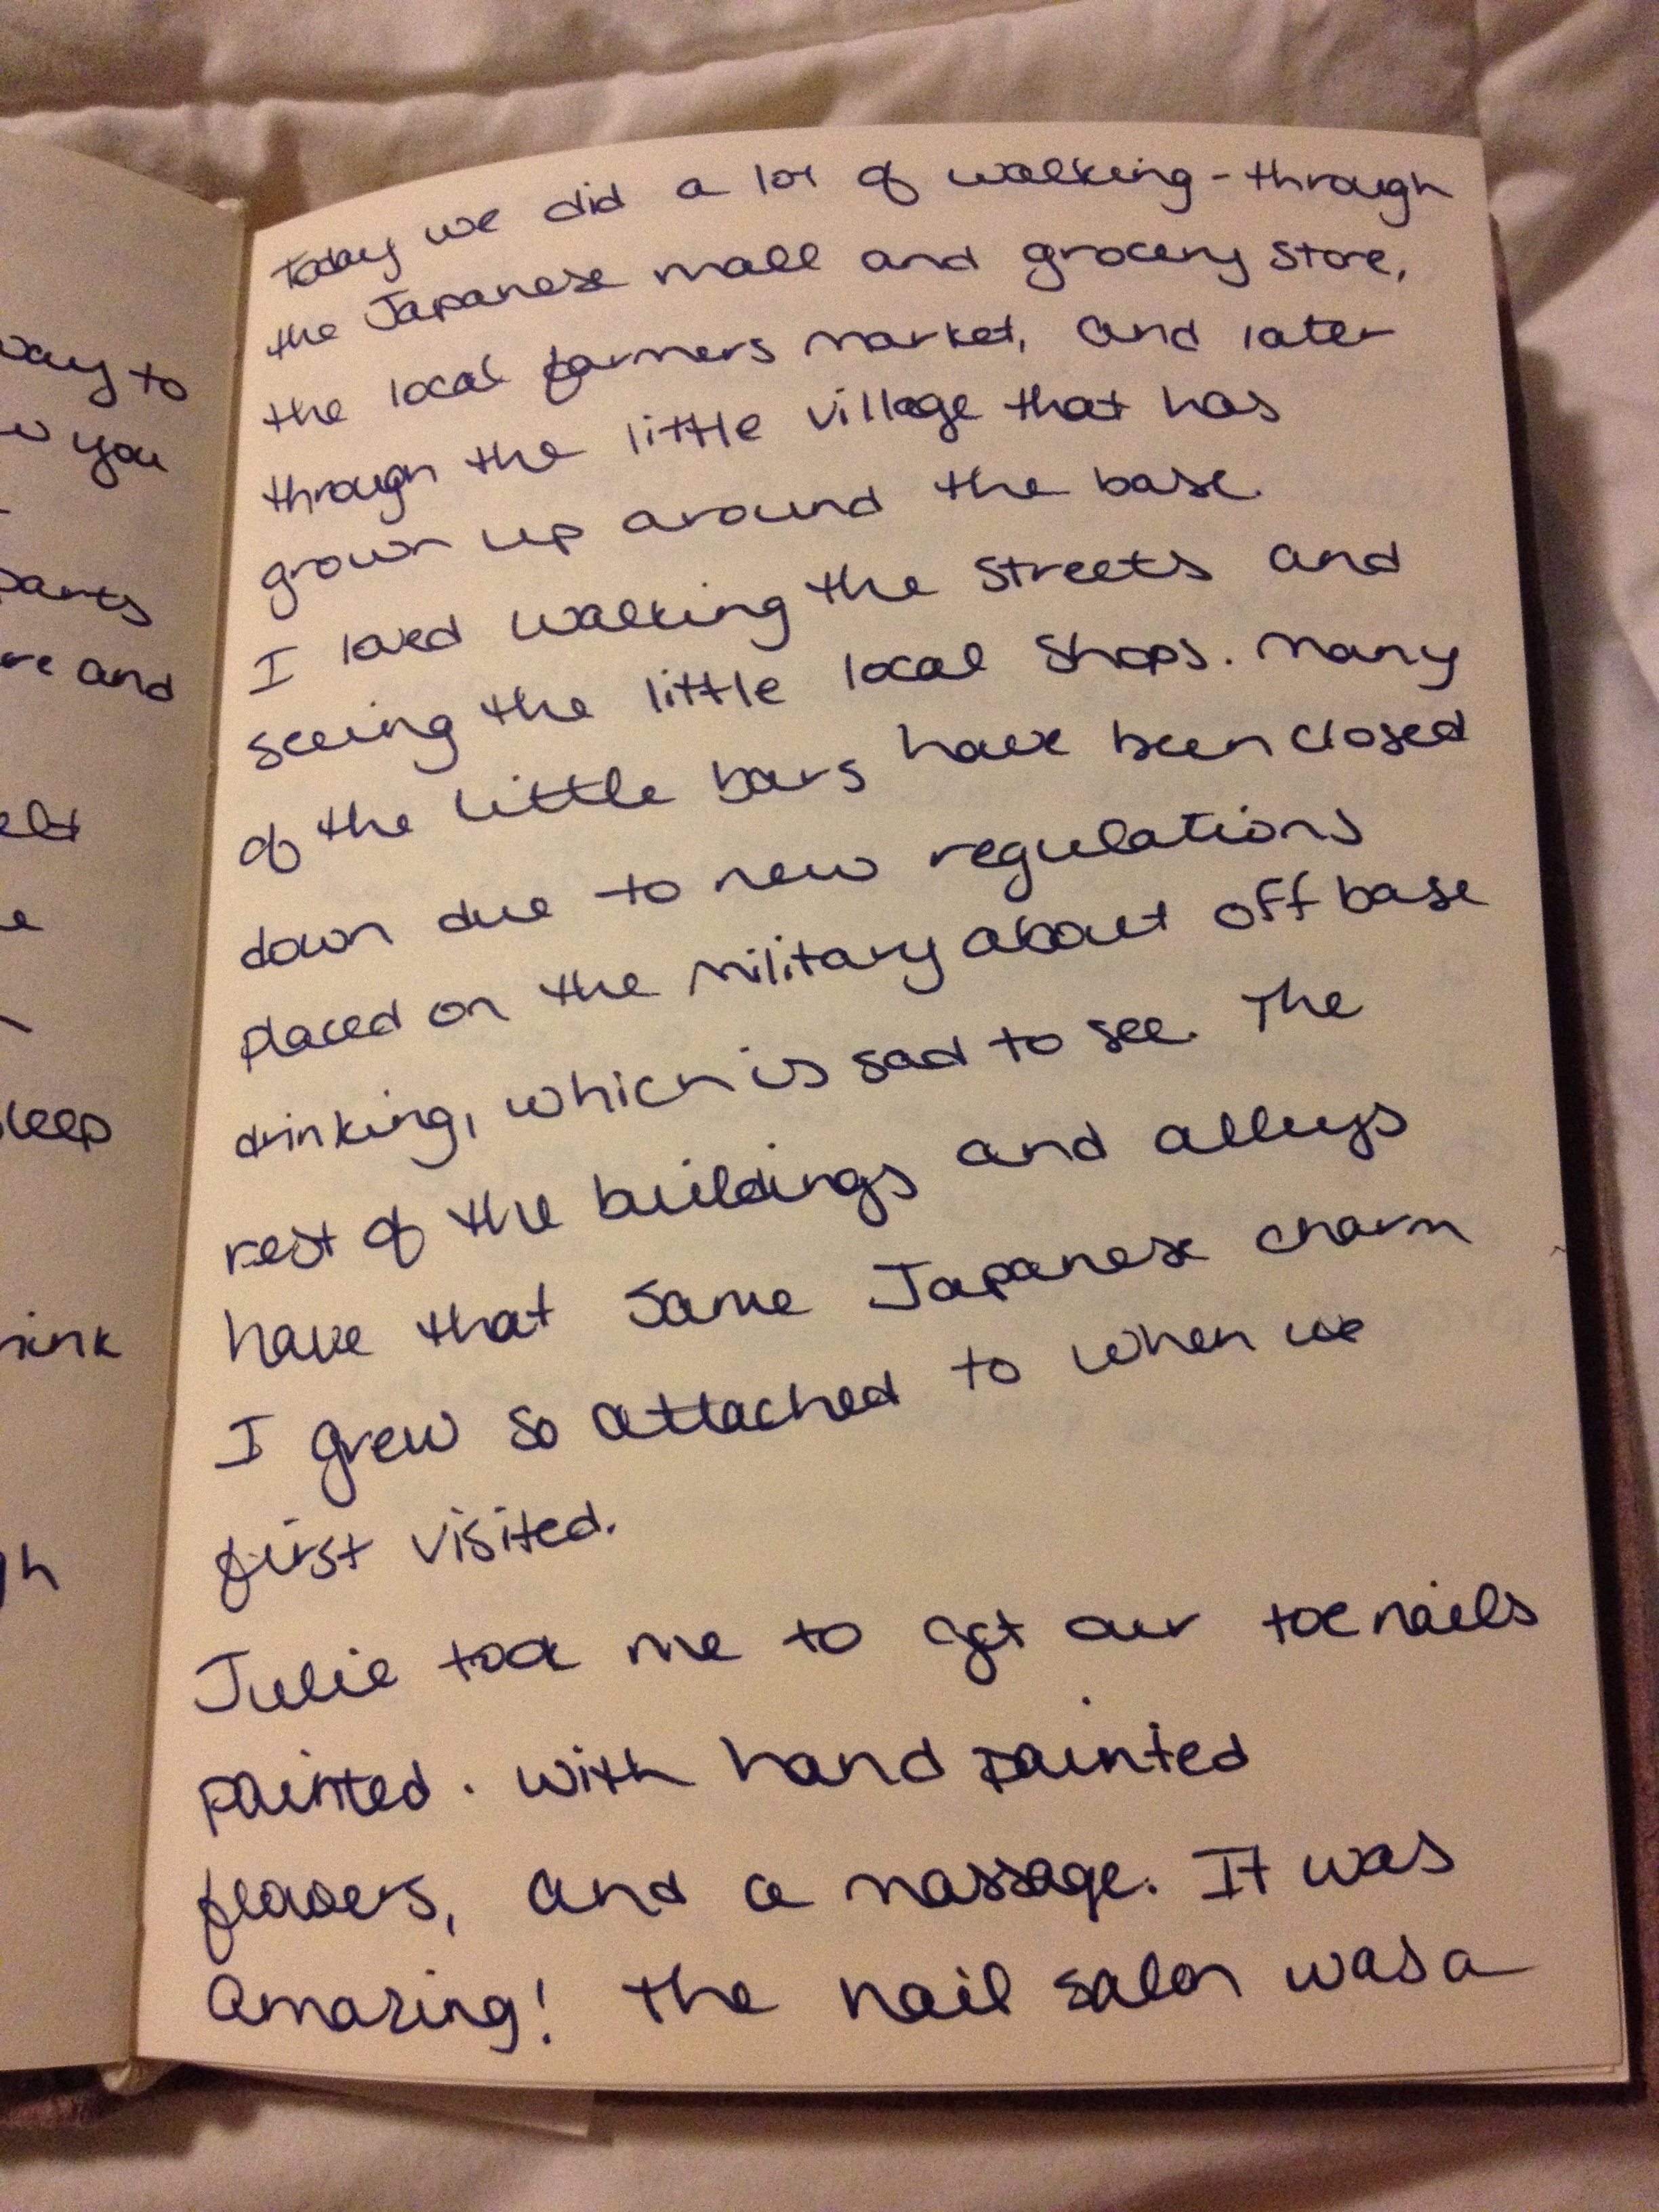 way to
you
parts
and
sleep
Today we did a lot of walking - through
the Japanese mall and grocery store,
the local farmers market, and later
through the little village that has
grown up around the base.
I loved walking the streets and
seeing the little local shops. Many
of the little bars have been closed
down due to new regulations
placed on the military about off base
drinking, which is sad to see. The
rest of the buildings and alleys
have that same Japanese charm
I grew so attached to when we
first visited.
Julie took me to get our toenails
painted. with hand painted
flowers, and a massage. It was
Amazing! The nail salon was a